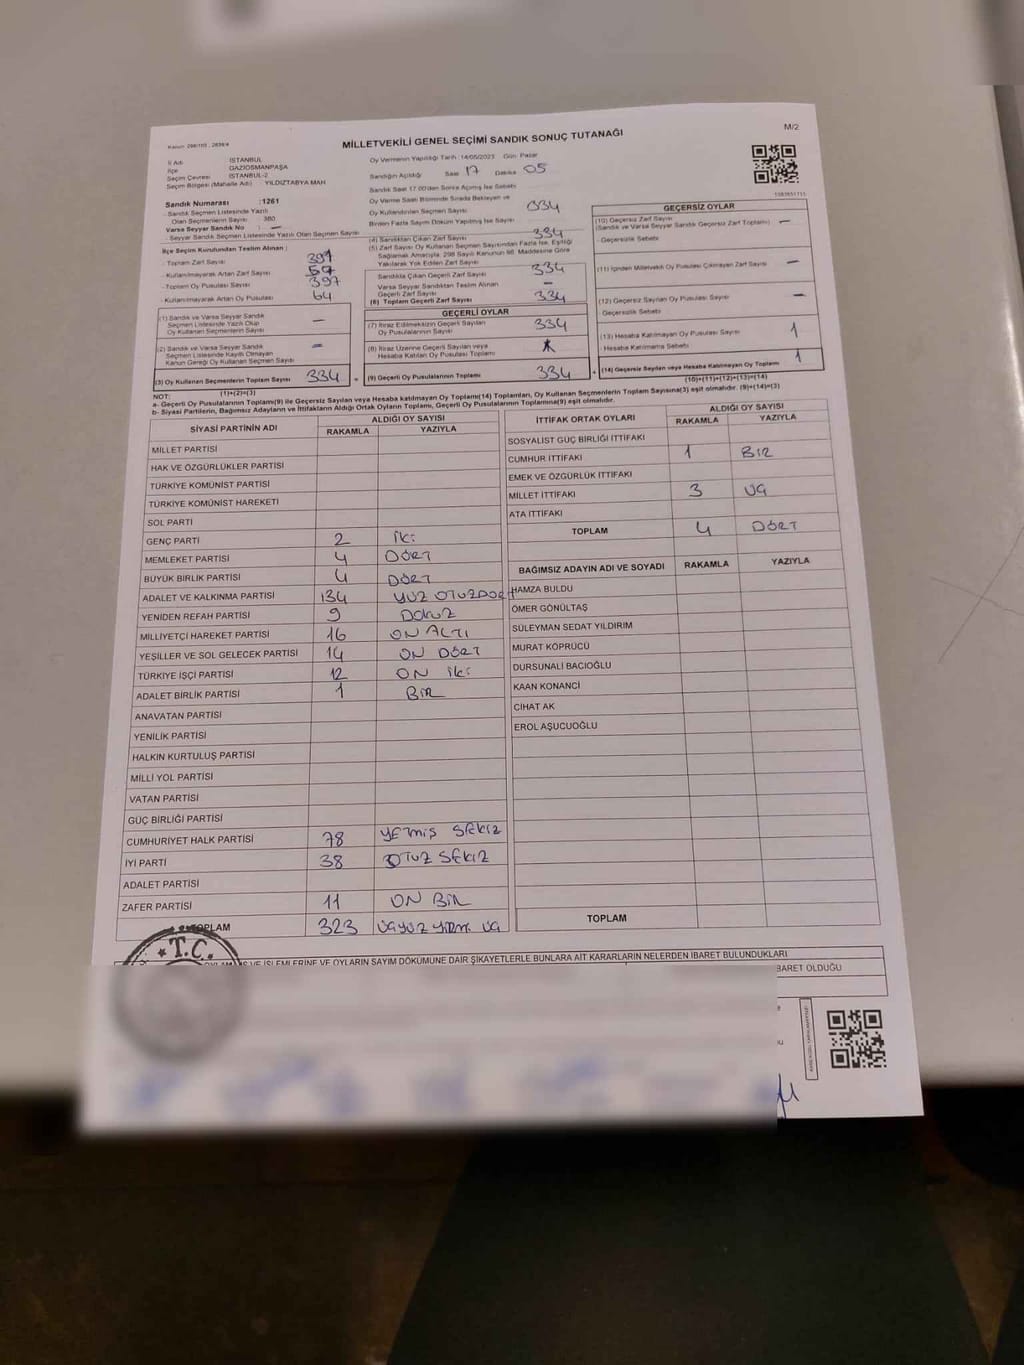 Kanun: 298/105 , 2839/4
MİLLETVEKİLİ GENEL SEÇİMİ SANDIK SONUÇ TUTANAĞI
M/2
İl Adı : İSTANBUL
İlçe : GAZİOSMANPAŞA
Seçim Çevresi : İSTANBUL-2
Seçim Bölgesi (Mahalle Adı) : YILDIZTABYA MAH
Oy Vermenin Yapıldığı Tarih : 14/05/2023 Gün: Pazar
Sandığın Açıldığı Saat 17 Dakika 05
Sandık Saat 17.00'den Sonra Açılmış İse Sebebi
Oy Verme Saati Bitiminde Sırada Bekleyen ve
Oy Kullandırılan Seçmen Sayısı 334
Birden Fazla Sayım Döküm Yapılmış İse Sayısı
Sandık Numarası :1261
- Sandık Seçmen Listesinde Yazılı
Olan Seçmenlerin Sayısı : 380
Varsa Seyyar Sandık No : —
- Seyyar Sandık Seçmen Listesinde Yazılı Olan Seçmen Sayısı :
İlçe Seçim Kurulundan Teslim Alınan :
- Toplam Zarf Sayısı 397
- Kullanılmayarak Artan Zarf Sayısı
- Toplam Oy Pusulası Sayısı 397
- Kullanılmayarak Artan Oy Pusulası 64
(1) Sandık ve Varsa Seyyar Sandık
Seçmen Listesinde Yazılı Olup
Oy Kullanan Seçmenlerin Sayısı —
(2) Sandık ve Varsa Seyyar Sandık
Seçmen Listesinde Kayıtlı Olmayan
Kanun Gereği Oy Kullanan Seçmen Sayısı —
(3) Oy Kullanan Seçmenlerin Toplam Sayısı 334
(1)+(2)=(3)
(4) Sandıktan Çıkan Zarf Sayısı 334
(5) Zarf Sayısı Oy Kullanan Seçmen Sayısından Fazla İse, Eşitliği
Sağlamak Amacıyla, 298 Sayılı Kanunun 98. Maddesine Göre
Yakılarak Yok Edilen Zarf Sayısı
Sandıkta Çıkan Geçerli Zarf Sayısı 334
Varsa Seyyar Sandıktan Teslim Alınan
Geçerli Zarf Sayısı —
(6) Toplam Geçerli Zarf Sayısı 334
GEÇERLİ OYLAR
(7) İtiraz Edilmeksizin Geçerli Sayılan
Oy Pusulalarının Sayısı 334
(8) İtiraz Üzerine Geçerli Sayılan veya
Hesaba Katılan Oy Pusulası Toplamı
= (9) Geçerli Oy Pusulalarının Toplamı 334
GEÇERSİZ OYLAR
(10) Geçersiz Zarf Sayısı
(Sandık ve Varsa Seyyar Sandık Geçersiz Zarf Toplamı) —
- Geçersizlik Sebebi:
(11) İçinden Milletvekili Oy Pusulası Çıkmayan Zarf Sayısı —
(12) Geçersiz Sayılan Oy Pusulası Sayısı —
- Geçersizlik Sebebi:
(13) Hesaba Katılmayan Oy Pusulası Sayısı 1
- Hesaba Katılmama Sebebi:
+ (14) Geçersiz Sayılan veya Hesaba Katılmayan Oy Toplamı 1
(10)+(11)+(12)+(13)=(14)
NOT:
a- Geçerli Oy Pusulalarının Toplamı(9) ile Geçersiz Sayılan veya Hesaba katılmayan Oy Toplamı(14) Toplamları, Oy Kullanan Seçmenlerin Toplam Sayısına(3) eşit olmalıdır. (9)+(14)=(3)
b- Siyasi Partilerin, Bağımsız Adayların ve İttifakların Aldığı Ortak Oyların Toplamı, Geçerli Oy Pusulalarının Toplamına(9) eşit olmalıdır.
SİYASİ PARTİNİN ADI ALDIĞI OY SAYISI
RAKAMLA YAZIYLA
MİLLET PARTİSİ
HAK VE ÖZGÜRLÜKLER PARTİSİ
TÜRKİYE KOMÜNİST PARTİSİ
TÜRKİYE KOMÜNİST HAREKETİ
SOL PARTİ
GENÇ PARTİ 2 İKİ
MEMLEKET PARTİSİ 4 DÖRT
BÜYÜK BİRLİK PARTİSİ 4 DÖRT
ADALET VE KALKINMA PARTİSİ 134 YÜZ OTUZDÖRT
YENİDEN REFAH PARTİSİ 9 DOKUZ
MİLLİYETÇİ HAREKET PARTİSİ 16 ON ALTI
YEŞİLLER VE SOL GELECEK PARTİSİ 14 ON DÖRT
TÜRKİYE İŞÇİ PARTİSİ 12 ON İKİ
ADALET BİRLİK PARTİSİ 1 BİR
ANAVATAN PARTİSİ
YENİLİK PARTİSİ
HALKIN KURTULUŞ PARTİSİ
MİLLİ YOL PARTİSİ
VATAN PARTİSİ
GÜÇ BİRLİĞİ PARTİSİ
CUMHURİYET HALK PARTİSİ 78 YETMİŞ SEKİZ
İYİ PARTİ 38 OTUZ SEKİZ
ADALET PARTİSİ
ZAFER PARTİSİ 11 ON BİR
TOPLAM 323 ÜÇYÜZ YİRMİ ÜÇ
İTTİFAK ORTAK OYLARI ALDIĞI OY SAYISI
RAKAMLA YAZIYLA
SOSYALİST GÜÇ BİRLİĞİ İTTİFAKI
CUMHUR İTTİFAKI 1 BİR
EMEK VE ÖZGÜRLÜK İTTİFAKI
MİLLET İTTİFAKI 3 ÜÇ
ATA İTTİFAKI
TOPLAM 4 DÖRT
BAĞIMSIZ ADAYIN ADI VE SOYADI RAKAMLA YAZIYLA
HAMZA BULDU
ÖMER GÖNÜLTAŞ
SÜLEYMAN SEDAT YILDIRIM
MURAT KÖPRÜCÜ
DURSUNALİ BACIOĞLU
KAAN KONANCİ
CİHAT AK
EROL AŞUCUOĞLU
TOPLAM
T.C.
VE İŞLEMLERİNE VE OYLARIN SAYIM DÖKÜMÜNE DAİR ŞİKAYETLERLE BUNLARA AİT KARARLARIN NELERDEN İBARET BULUNDUKLARI
BARET OLDUĞU